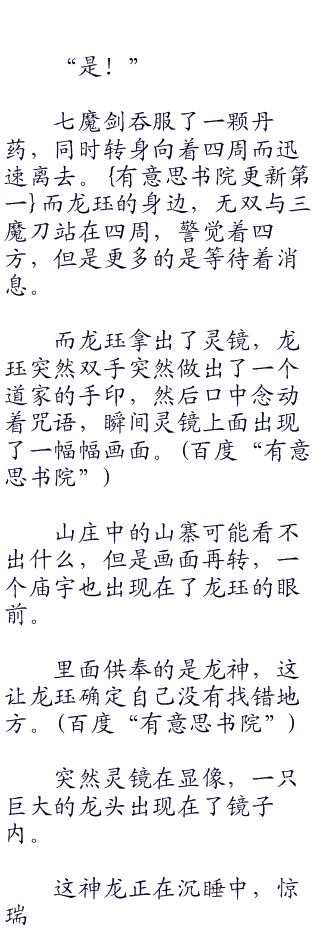 “是！”
七魔剑吞服了一颗丹
药，同时转身向着四周而迅
速离去。{有意思书院更新第
一}而龙珏的身边，无双与三
魔刀站在四周，警觉着四
方，但是更多的是等待着消
息。
而龙珏拿出了灵镜，龙
珏突然双手突然做出了一个
道家的手印，然后口中念动
着咒语，瞬间灵镜上面出现
了一幅幅画面。(百度“有意
思书院”)
山庄中的山寨可能看不
出什么，但是画面再转，一
个庙宇也出现在了龙珏的眼
前。
里面供奉的是龙神，这
让龙珏确定自己没有找错地
方。(百度“有意思书院”)
突然灵镜在显像，一只
巨大的龙头出现在了镜子
内。
这神龙正在沉睡中，惊
瑞